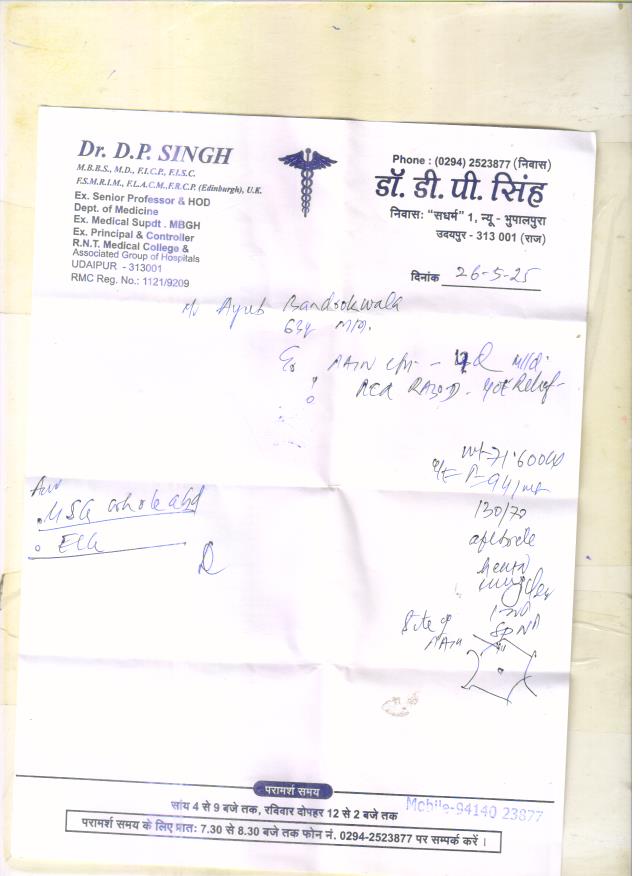 Dr. D.P. SINGH
M.B.B.S., M.D., F.I.C.P., F.I.S.C.
F.S.M.R.I.M., F.L.A.C.M.,F.R.C.P. (Edinburgh), U.K.
Ex. Senior Professor & HOD
Dept. of Medicine
Ex. Medical Supdt . MBGH
Ex. Principal & Controller
R.N.T. Medical College &
Associated Group of Hospitals
UDAIPUR - 313001
RMC Reg. No.: 1121/9209
Phone : (0294) 2523877 (निवास)
डॉ. डी. पी. सिंह
निवासः "सधर्म" 1, न्यू - भुपालपुरा
उदयपुर - 313 001 (राज)
दिनांक 26-5-25
Mr Ayub Bandookwala
63y
PAIN
Relief
wt-71.600
P-94/mt
130/70
afebrile
Site of
PAIN
Adv
. USG whole abd
. ECG
परामर्श समय
सांय 4 से 9 बजे तक, रविवार दोपहर 12 से 2 तक
Mobile-94140 23877
परामर्श समय के लिए प्रातः 7.30 से 8.30 बजे तक फोन नं. 0294-2523877 पर सम्पर्क करें ।